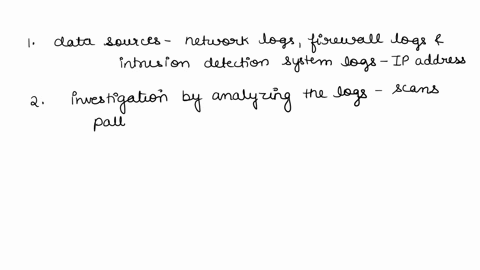 1. data sources - network logs, firewall logs &
intrusion detection system logs - IP address
2. investigation by analyzing the logs - scans
patt